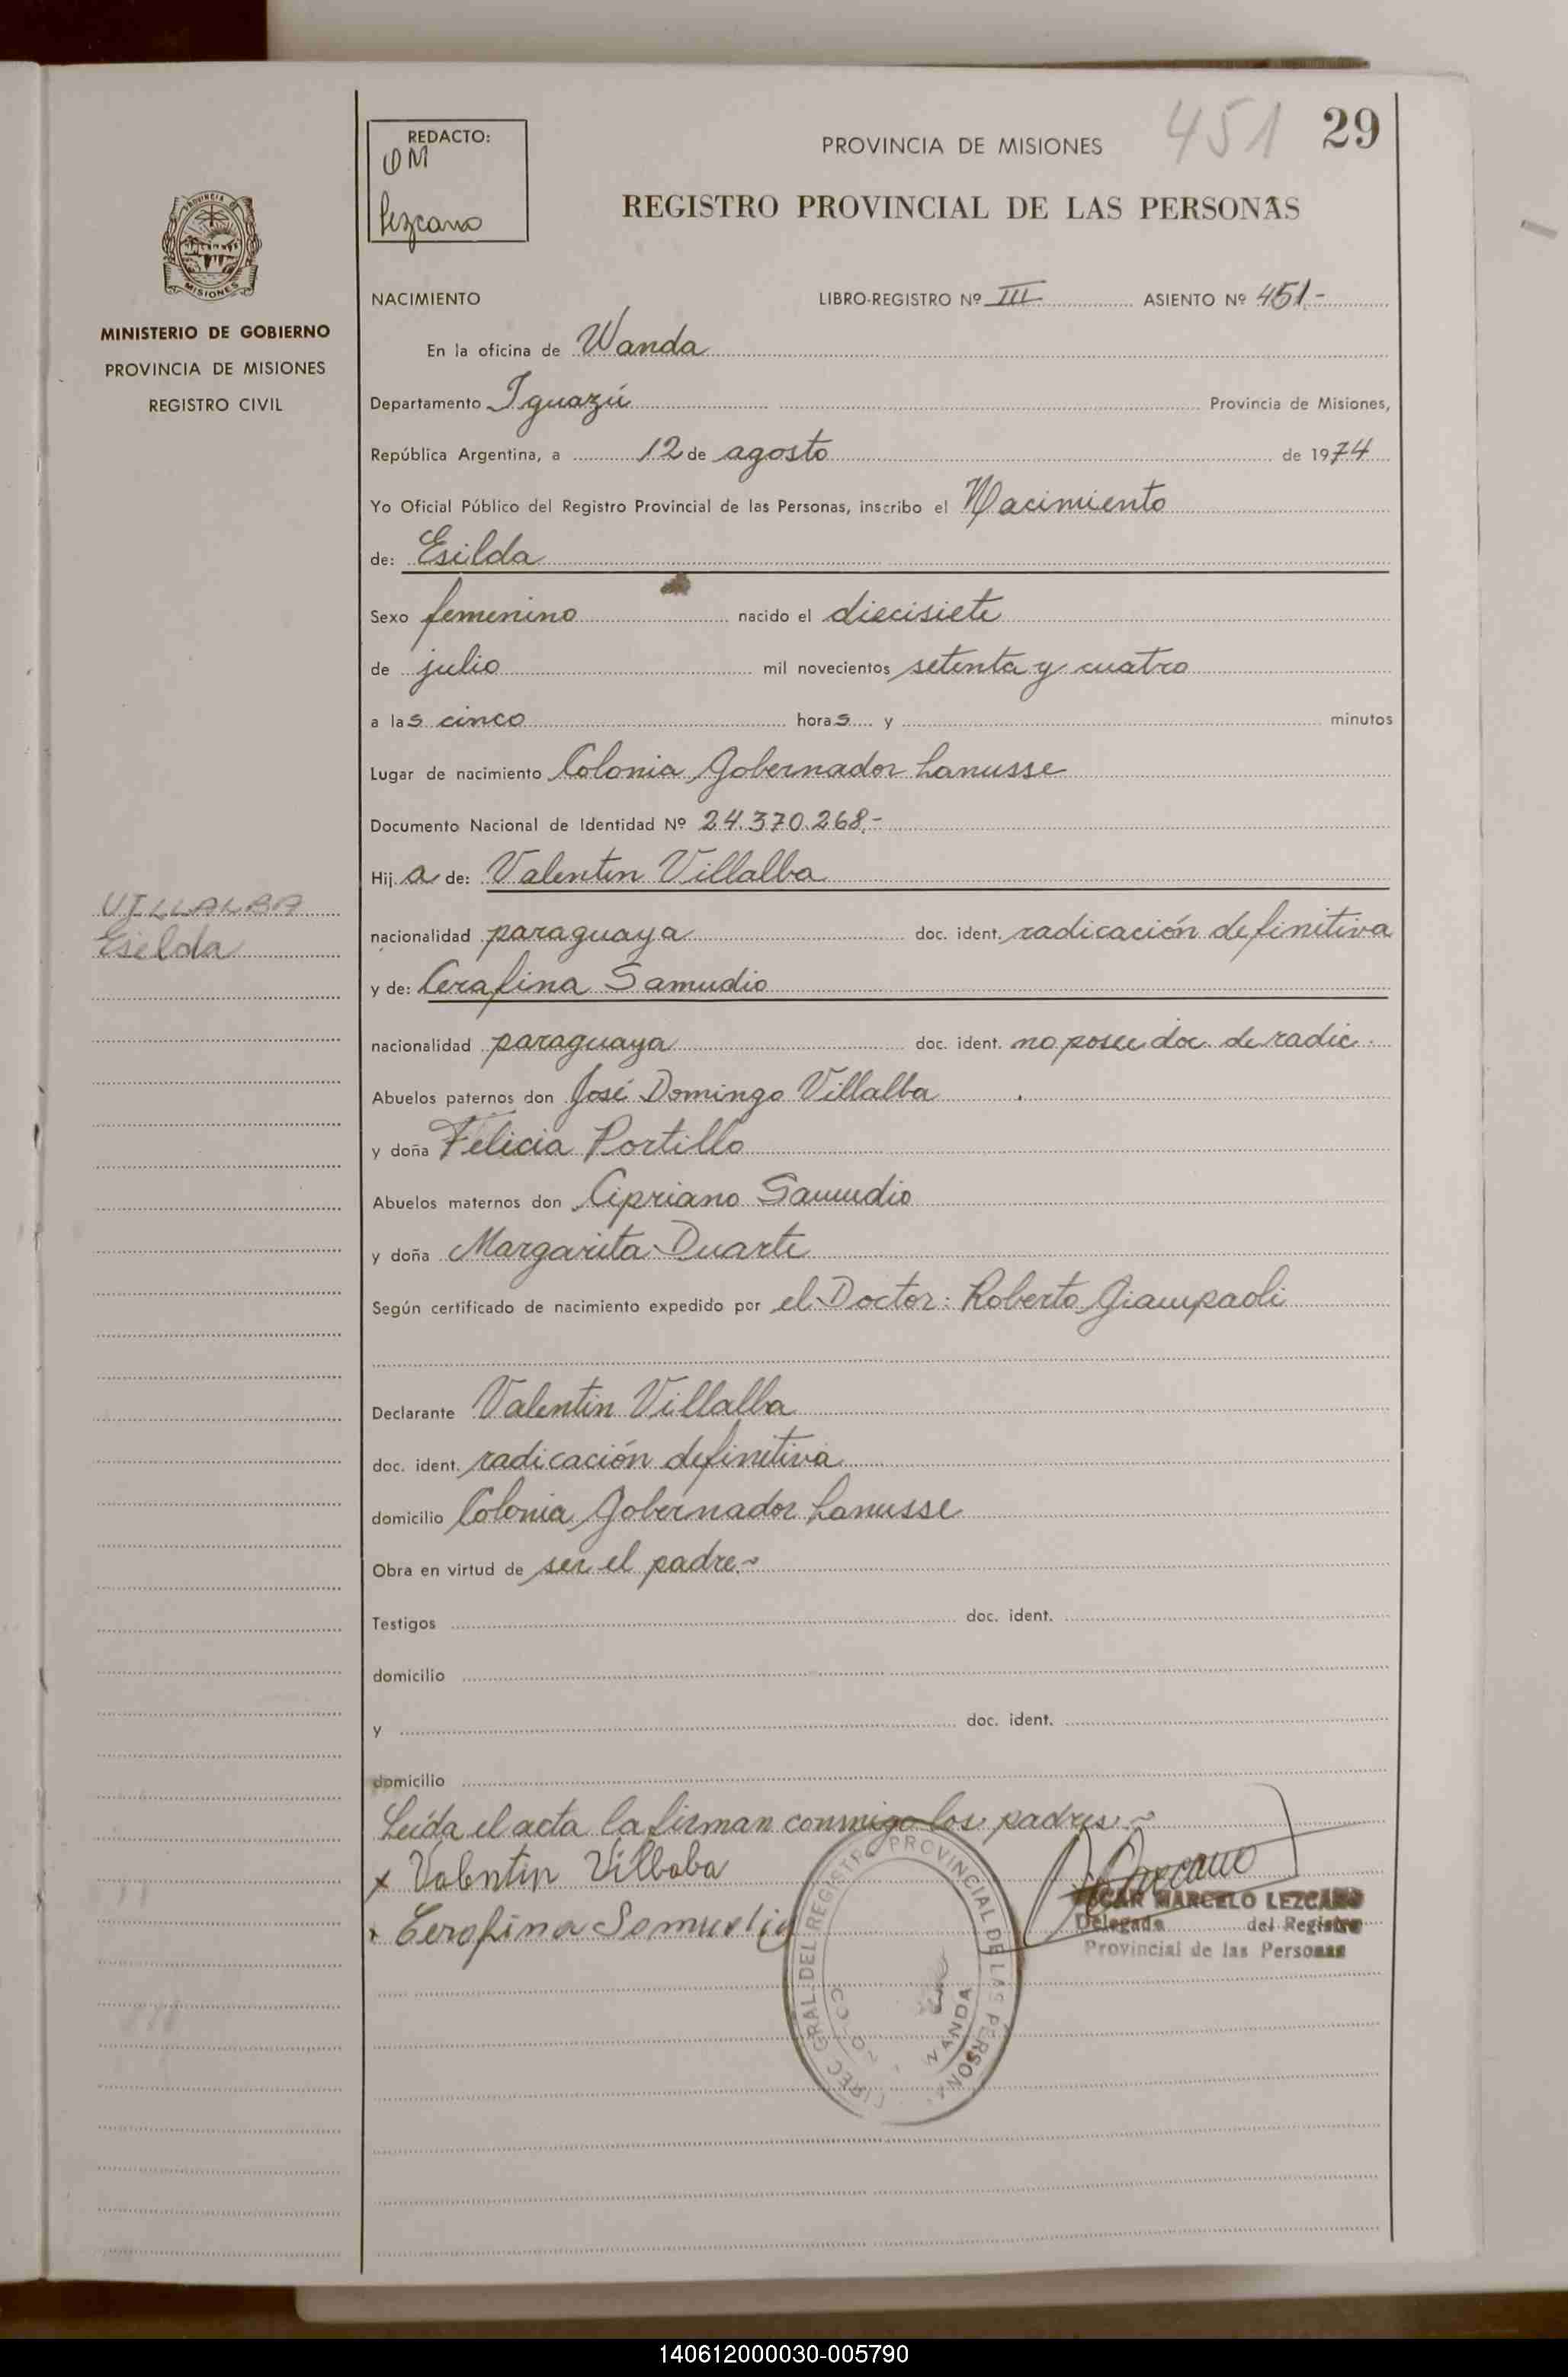 451 29
REDACTO:
OM
Lezcano
PROVINCIA DE MISIONES
REGISTRO PROVINCIAL DE LAS PERSONAS
PROVINCIA DE MISIONES
MINISTERIO DE GOBIERNO
PROVINCIA DE MISIONES
REGISTRO CIVIL
NACIMIENTO LIBRO-REGISTRO Nº III ASIENTO Nº 451.-
En la oficina de Wanda
Departamento Iguazú Provincia de Misiones,
República Argentina, a 12 de agosto de 1974
Yo Oficial Público del Registro Provincial de las Personas, inscribo el Nacimiento
de: Esilda
Sexo femenino nacido el diecisiete
de julio mil novecientos setenta y cuatro
a las cinco horas y minutos
Lugar de nacimiento Colonia Gobernador Lanusse
Documento Nacional de Identidad Nº 24.370.268.-
Hija de: Valentin Villalba
VILLALBA
Esilda
nacionalidad paraguaya doc. ident. radicación definitiva
y de: Cerafina Samudio
nacionalidad paraguaya doc. ident. no posee doc. de radic.
Abuelos paternos don José Domingo Villalba
y doña Felicia Portillo
Abuelos maternos don Cipriano Samudio
y doña Margarita Duarte
Según certificado de nacimiento expedido por el Doctor: Roberto Giampaoli
Declarante Valentin Villalba
doc. ident. radicación definitiva
domicilio Colonia Gobernador Lanusse
Obra en virtud de ser el padre.~
Testigos doc. ident.
domicilio
y doc. ident.
domicilio
Leída el acta la firman conmigo los padres.~
x Valentin Villbaba
x Cerafina Samudio
OSCAR MARCELO LEZCANO
Delegado del Registro
Provincial de las Personas
DIREC GRAL DEL REGISTRO PROVINCIAL DE LAS PERSONAS
WANDA
140612000030-005790